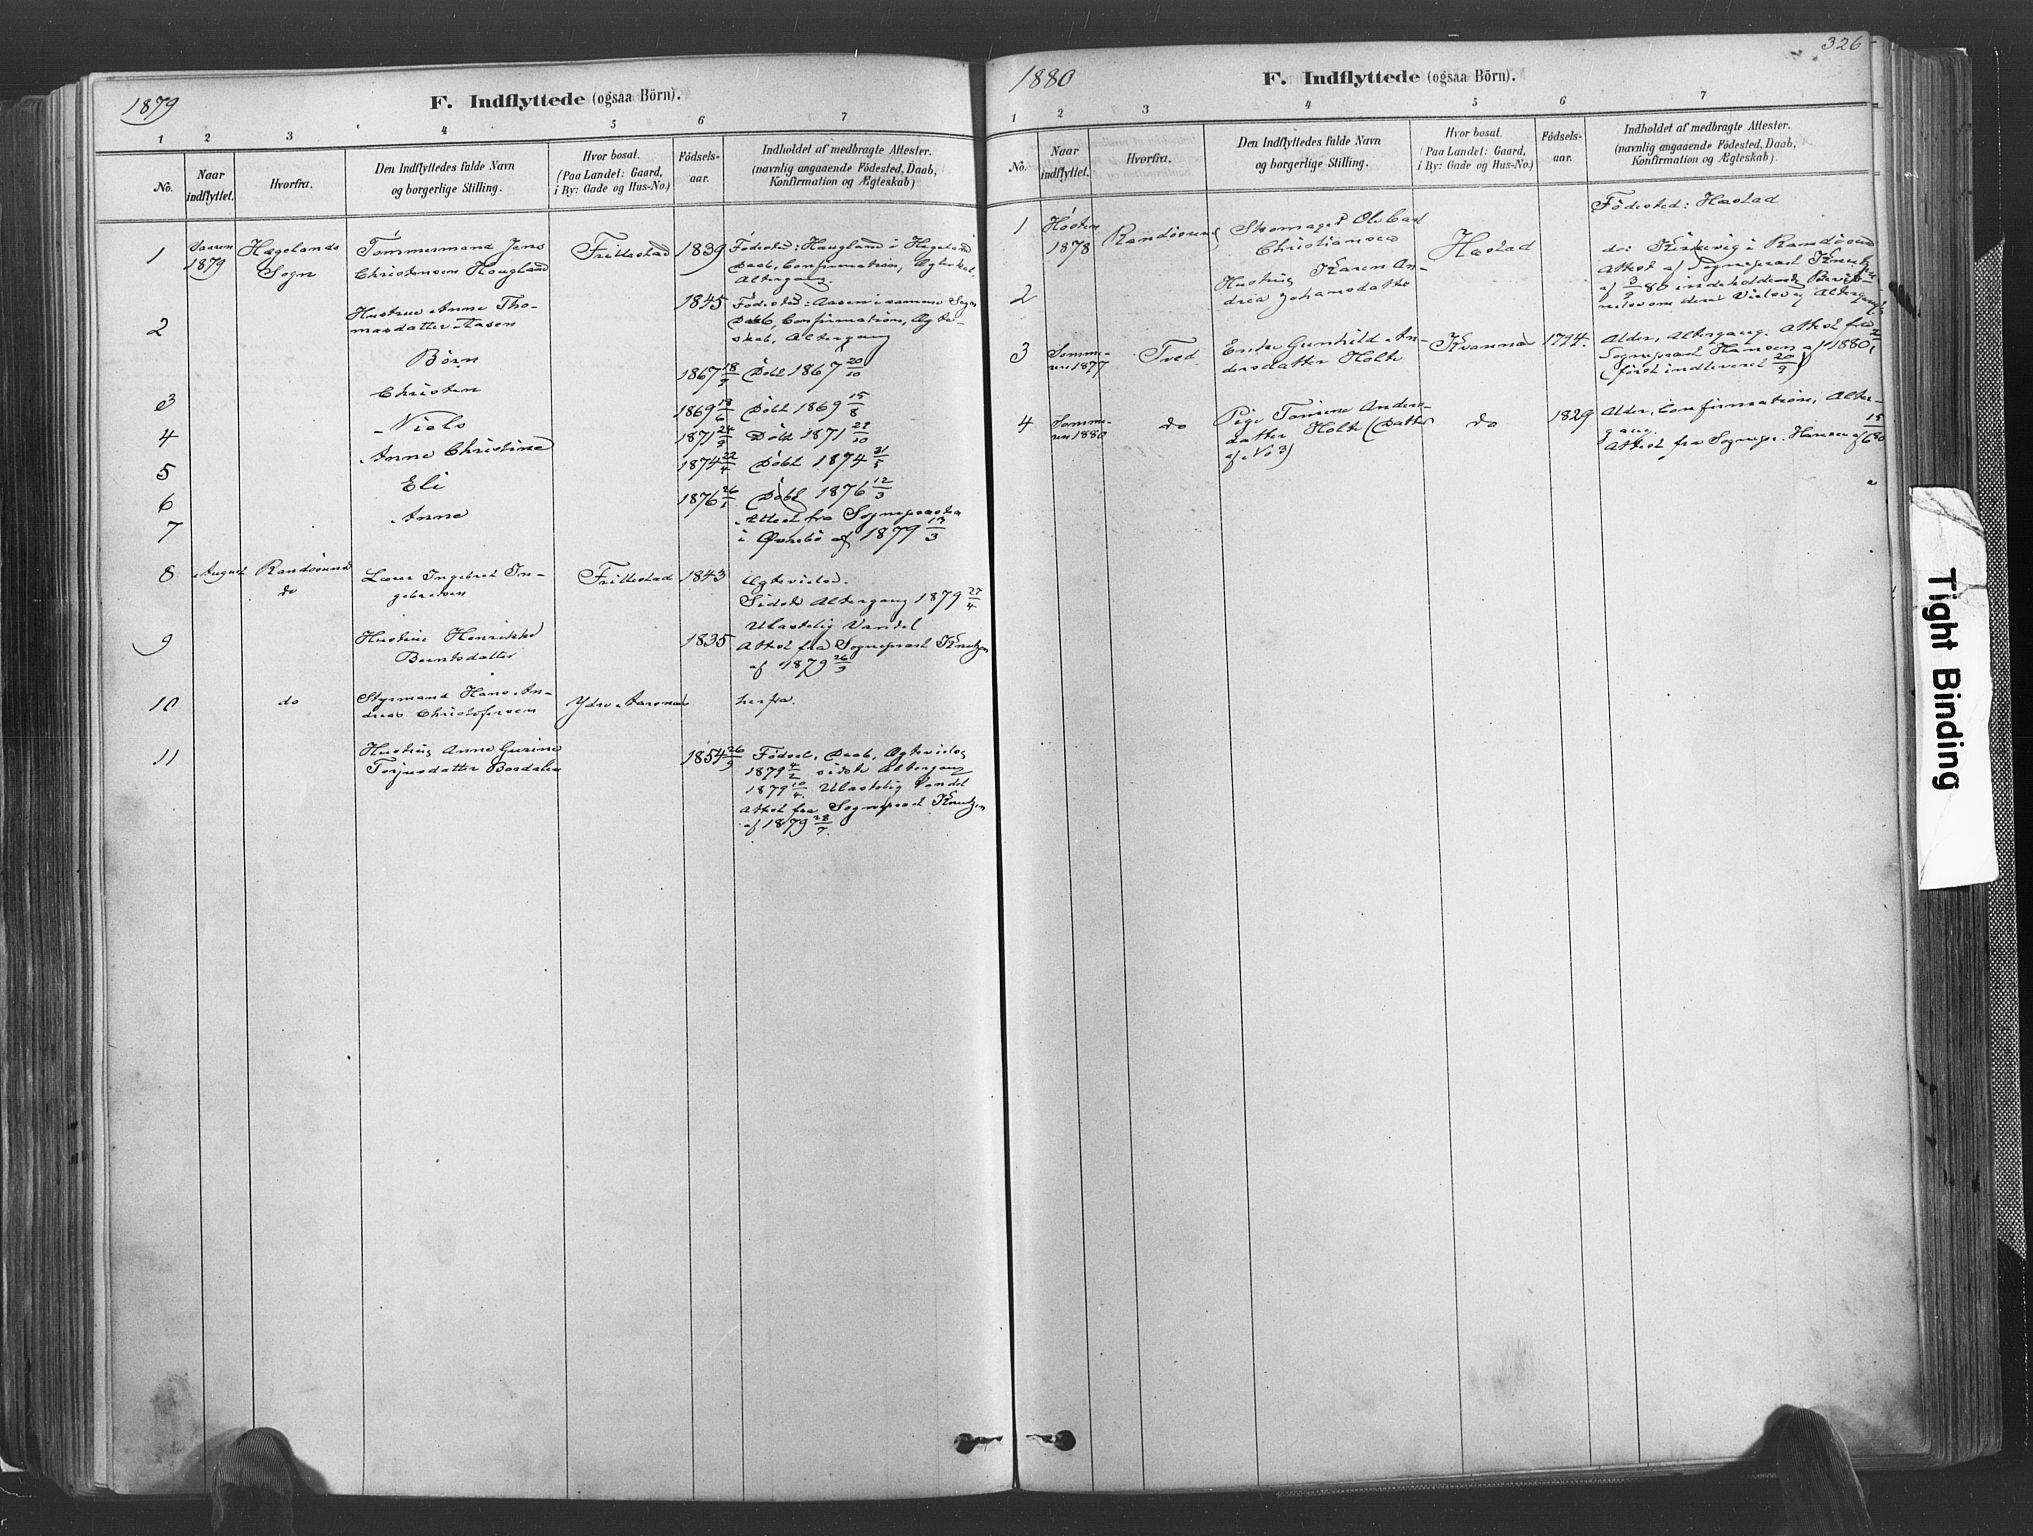 1879
F. Indflyttede (ogsaa Börn).
1 2 3 4 5 6 7
No.
Naar indflyttet.
Hvorfra.
Den Indflyttedes fulde Navn
og borgerlige Stilling.
Hvor bosat.
(Paa Landet: Gaard,
i By: Gade og Hus-No.)
Födsels-
aar.
Indholdet af medbragte Attester.
(navnlig angaaende Födested, Daab,
Konfirmation og Ægteskab)
1 Vaaren 1879 Hægelands Sogn
Tömmermand Jens
Christensen Hougland
Frillestad 1839
Födested: Haugland i Hægeland
Daab, Confirmation, Ægteskab,
Altergang.
2 Hustru Anne Tho-
masdatter Aasen
1845
Födested: Aasen i samme Sogn
Daab, Confirmation, Ægte-
skab, Altergang
Börn
3 Christen 1867 18/9 Döbt 1867 20/10
4 Niels 1869 13/6 Döbt 1869 15/8
5 Anne Christine 1871 24/9 Döbt 1871 22/10
6 Eli 1874 22/4 Döbt 1874 31/5
7 Anne 1876 26/1 Döbt 1876 12/3
Attest fra Sognepresten
i Øvrebö af 1879 13/3
8 August Randösund
do
Lars Ingebret In-
gebretsen
Frillestad 1843
Ægteviede.
Sidste Altergang 1879 27/4
Ulastelig Vandel
9 Hustru Henrikke
Berntsdatter
1835
Attest fra Sogneprest Knutzen
af 1879 26/9
10 do
Styrmand Hans An-
dreas Christofersen
Ydre Aarsnes
herfra.
11 Hustru Anne Gurine
Torjusdatter Bordalen
1854 26/9
Födsel, Daab, Ægtevielse
1879 4/2 sidste Altergang
1879 10/4. Ulastelig Vandel
Attest fra Sogneprest Knutzen
af 1879 28/7.
326
1880
F. Indflyttede (ogsaa Börn).
1 2 3 4 5 6 7
No.
Naar indflyttet.
Hvorfra.
Den Indflyttedes fulde Navn
og borgerlige Stilling.
Hvor bosat.
(Paa Landet: Gaard,
i By: Gade og Hus-No.)
Födsels-
aar.
Indholdet af medbragte Attester.
(navnlig angaaende Födested, Daab,
Konfirmation og Ægteskab).
1 Hösten
1878
Randösund
Skomager Ole Carl
Christiansen
Hastad
Födested: Hastad
2 Hustru Karen An-
drea Johansdatter
do: Kirkevig i Randösund
Attest af Sogneprest Knutzen
af 3/9 80 indeholdende Bevid-
nelse om deres Vielse og Altergang
3 Somme-
ren 1877
Tved
Enke Gunhild An-
dersdatter Holte
Kvarnes 1794.
Alder, Altergang. Attest fra
Sogneprest Hansen af 1880
(först indleveret 20/9)
4 Somme-
ren 1880
do
Pige Tomine Anders-
datter Holte (Datter
af No 3)
do 1829
Alder, Confirmation, Alter-
gang.
Attest fra Sognepr. Hansen af 15/6 80
Tight Binding